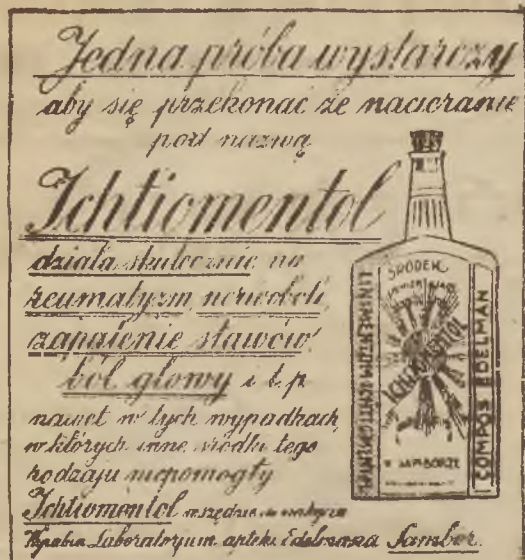 Jedna próba wystarczy
aby się przekonać że nacieranie
pod nazwą
Ichtiomentol
działa skutecznie na
reumatyzm, nerwobole,
zapalenie stawów
ból głowy i t.p
nawet w tych wypadkach,
w których inne środki tego
rodzaju niepomogły
Ichtiomentol wszędzie do nabycia
Laboratoryum apteki Edelmana Sambor.
ŚRODEK
ICHTIOMENTOL
W SAMBORZE
LINIMENTUM ICHTIOMENTOLI
COMPOS EDELMAN